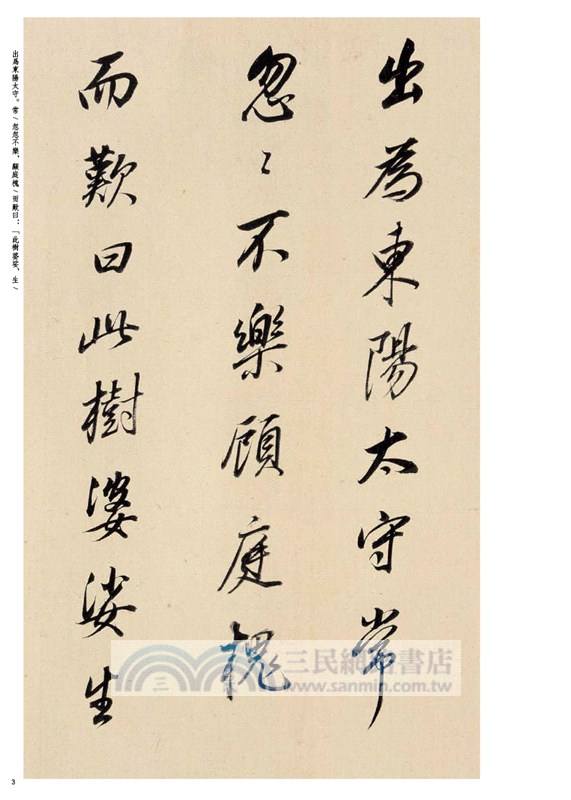 出為東陽太守常
忽〻不樂顧庭槐
而歎曰此樹婆娑生
出為東陽太守。常/忽忽不樂，顧庭槐/而歎曰：「此樹婆娑，生/
三民網路書店
www.sanmin.com.tw
3